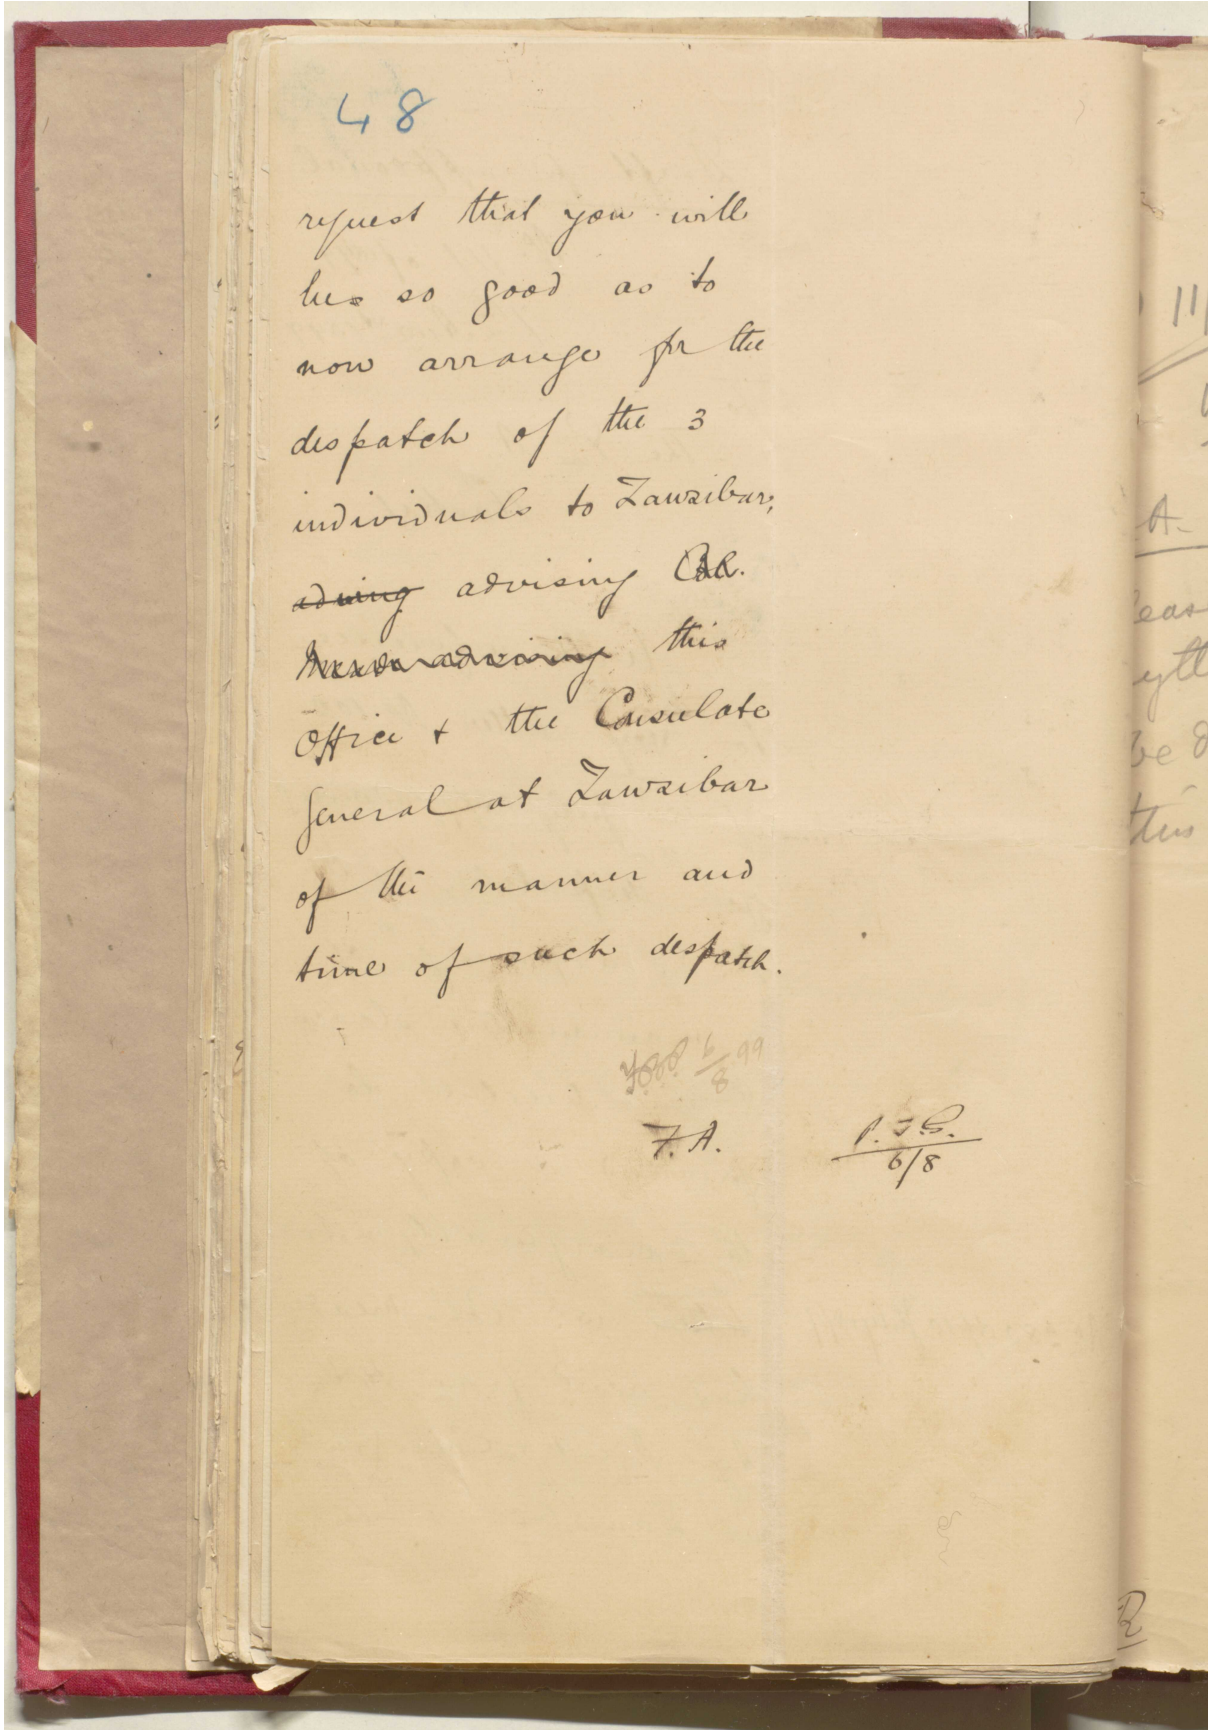 48
request that you will
be so good as to
now arrange for the
despatch of the 3
individuals to Zanzibar,
advising
this
Office & the Consulate
General at Zanzibar
of the manner and
time of such despatch.
6/8 99
F.A.
P.J.G.
6/8